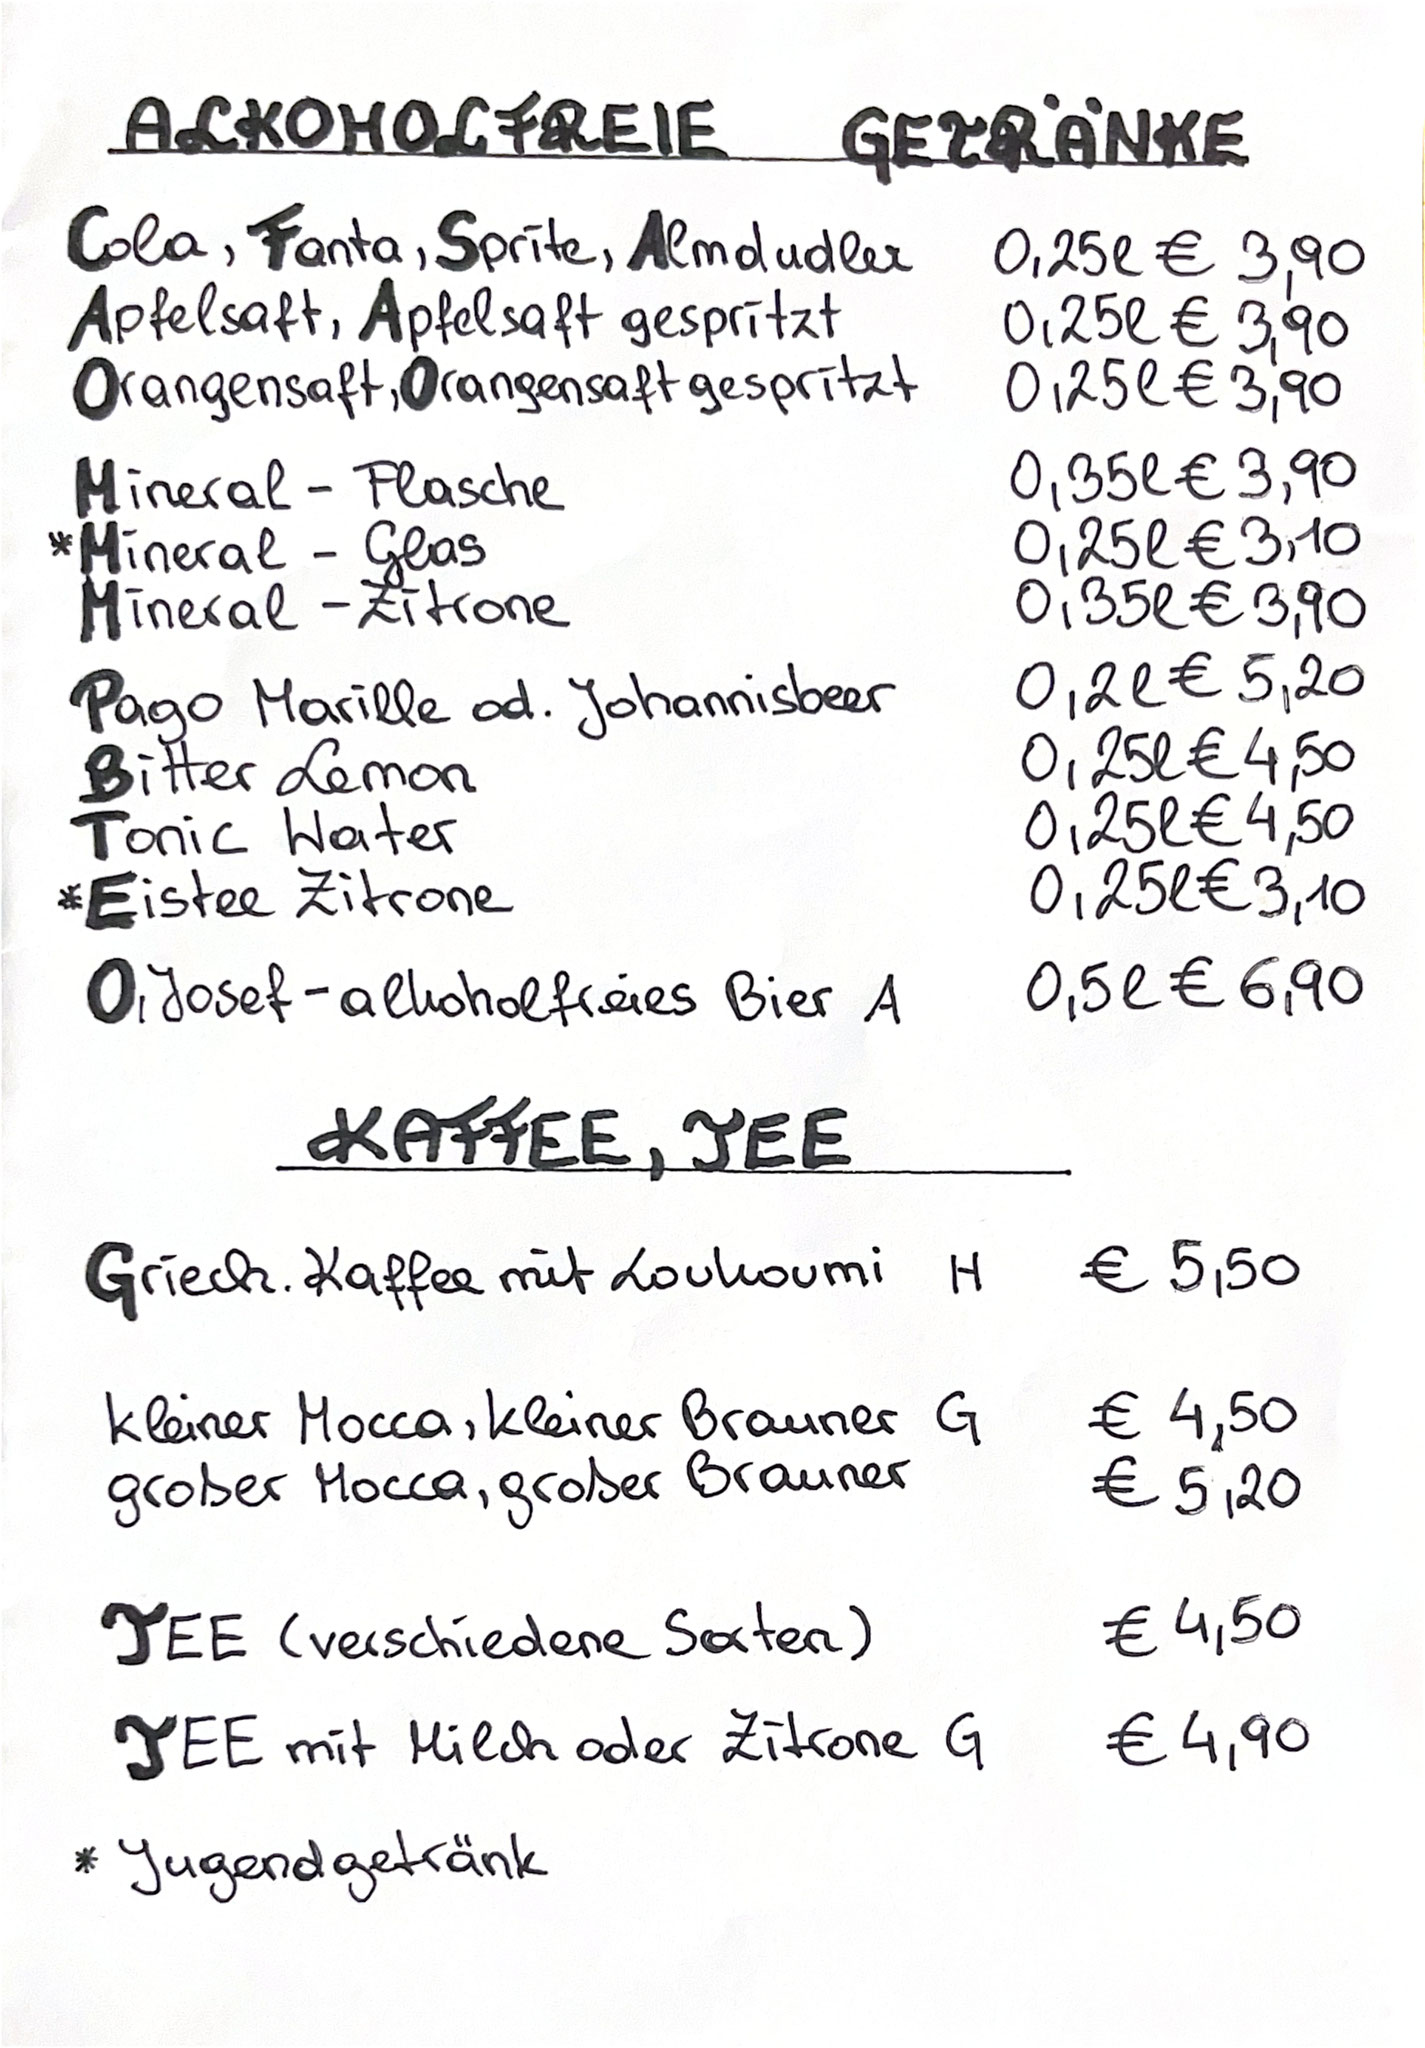 ALKOHOLFREIE GETRÄNKE
Cola, Fanta, Sprite, Almdudler 0,25l € 3,90
Apfelsaft, Apfelsaft gespritzt 0,25l € 3,90
Orangensaft, Orangensaft gespritzt 0,25l € 3,90
Mineral - Flasche 0,35l € 3,90
*Mineral - Glas 0,25l € 3,10
Mineral - Zitrone 0,35l € 3,90
Pago Marille od. Johannisbeer 0,2l € 5,20
Bitter Lemon 0,25l € 4,50
Tonic Water 0,25l € 4,50
*Eistee Zitrone 0,25l € 3,10
O,Josef - alkoholfreies Bier A 0,5l € 6,90
KAFFEE, TEE
Griech. Kaffee mit Loukoumi H € 5,50
kleiner Mocca, kleiner Brauner G € 4,50
großer Mocca, großer Brauner € 5,20
TEE (verschiedene Sorten) € 4,50
TEE mit Milch oder Zitrone G € 4,90
* Jugendgetränk